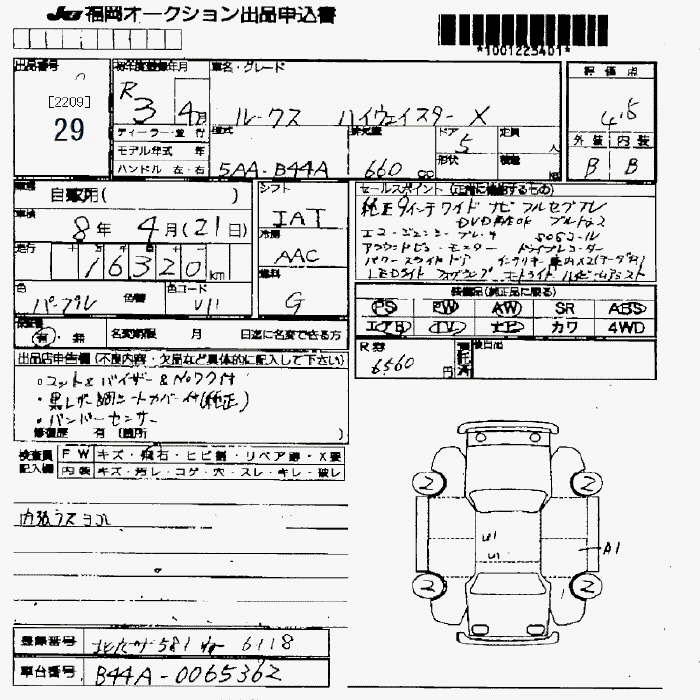 JU福岡オークション出品申込書
*1001223401*
出品番号
[2209]
29
初年度登録年月
R3 4月
車名・グレード
ルークス ハイウェイスター X
評価点
4.5
ディーラー・並行
モデル年式 年
ハンドル 左・右
型式
5AA-B44A
排気量
660 cc
ドア 5
形状
定員 人
積載 kg
外装 内装
B B
車歴
自家用( )
車検
8年 4月(21日)
走行
16320km
色
パープル
色替
色コード
シフト
IAT
冷房
AAC
燃料
G
セールスポイント (正常に機能するもの)
純正9インチワイドナビ フルセグTV
DVD再生 ブルートゥス
アラウンドビューモニター ドライブレコーダー
パワースライドドア
LEDライト フォグランプ オートライト ハイビームアシスト
装備品(純正品に限る)
PS PW AW SR ABS
エアB TV ナビ カワ 4WD
検査書
有・無
名変期限 月 日迄に名変できる方
R券
6560円
後日品
出品店申告欄 (不良内容・欠品など具体的に記入して下さい)
・コット&バイザー&Noワク付
・黒レザー調シートカバー付(純正)
・バンパーセンサー
修復歴 有 (箇所 )
検査員記入欄
FW キズ・飛石・ヒビ割・リペア跡・X要
内装 キズ・汚レ・コゲ・穴・スレ・キレ・破レ
内張ウスヨゴレ
2 2
A1
2 2
登録番号
581 6118
車台番号
B44A-0065362